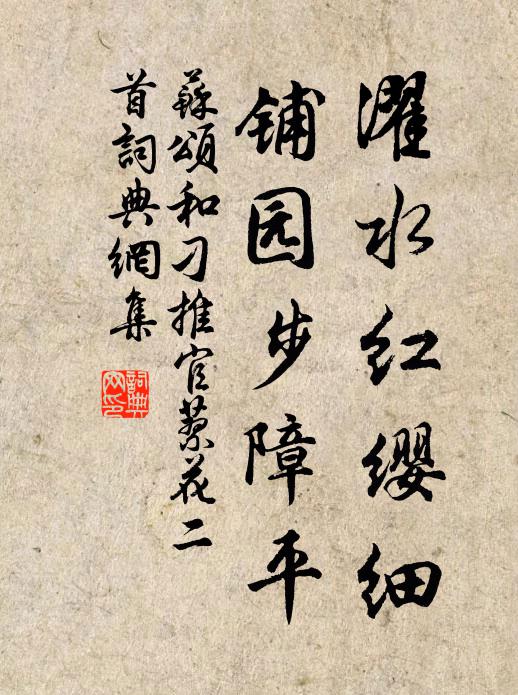 濯水红缨细
铺园步障平
蘇頌和刁推官蓼花二
首詞典網集
詞典网印